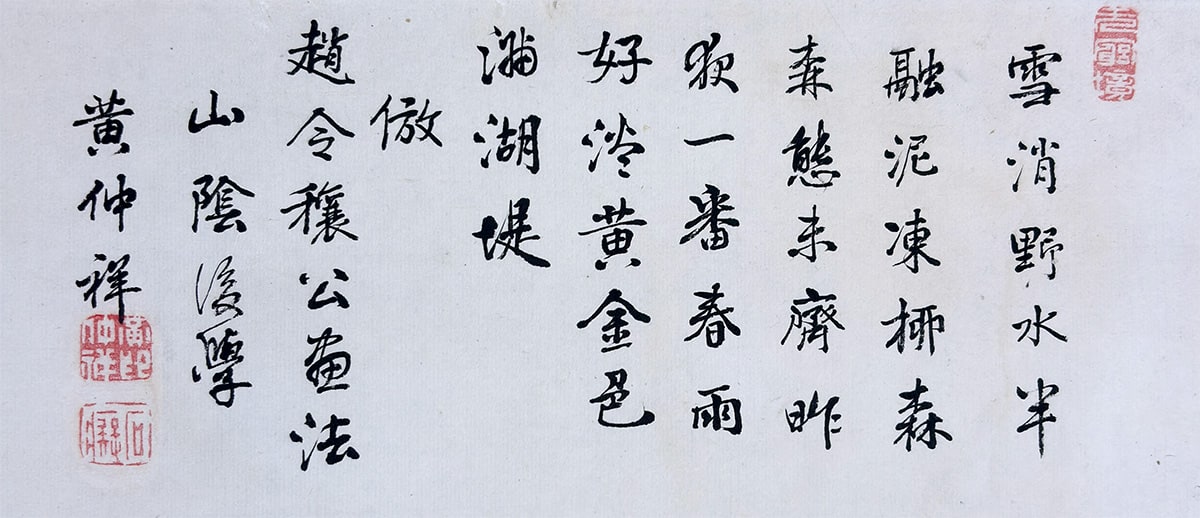 雪消野水半
融泥凍柳森
森態未齊昨
夜一番春雨
好淡黄金色
滿湖堤
倣
趙令穰公畫法
山陰後學
黄仲祥
黃印仲祥